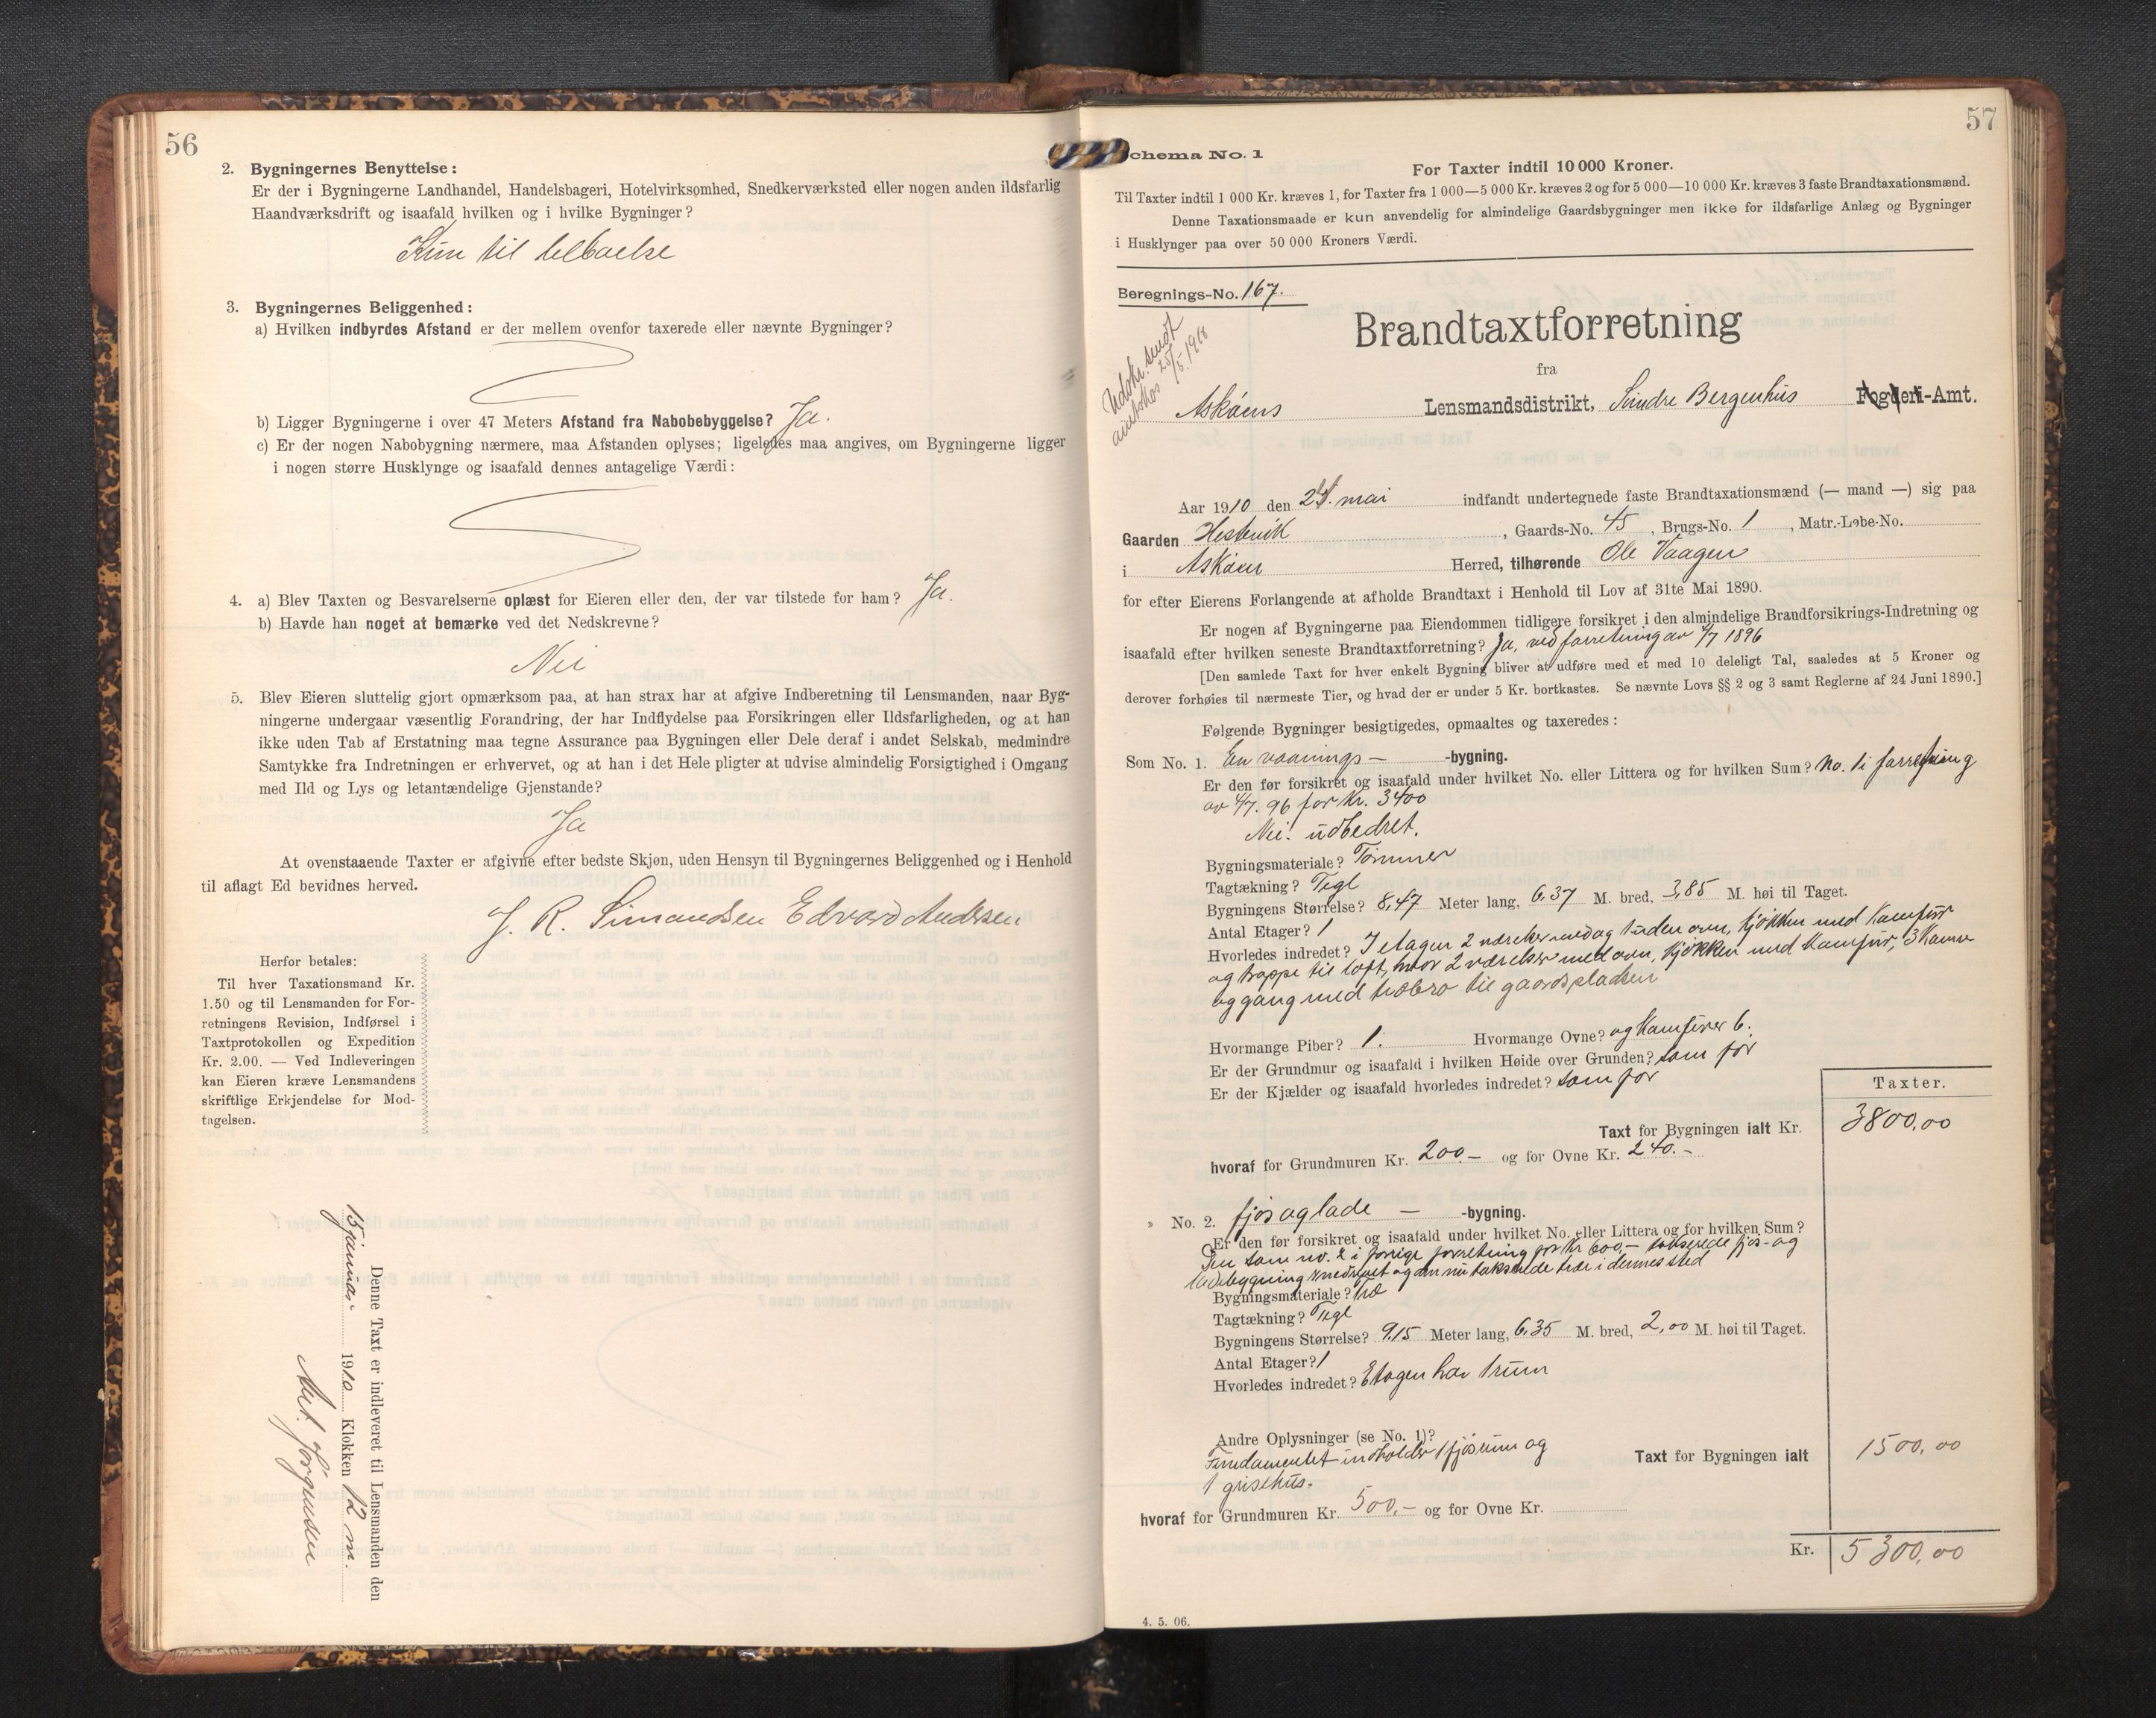 56
2. Bygningernes Benyttelse:
Er der i Bygningerne Landhandel, Handelsbageri, Hotelvirksomhed, Snedkerværksted eller nogen anden ildsfarlig
Haandværksdrift og isaafald hvilken og i hvilke Bygninger?
Kun til beboelse
3. Bygningernes Beliggenhed:
a) Hvilken indbyrdes Afstand er der mellem ovenfor taxerede eller nævnte Bygninger?
b) Ligger Bygningerne i over 47 Meters Afstand fra Nabobebyggelse? Ja.
c) Er der nogen Nabobygning nærmere, maa Afstanden oplyses; ligeledes maa angives, om Bygningerne ligger
i nogen større Husklynge og isaafald dennes antagelige Værdi:
4. a) Blev Taxten og Besvarelserne oplæst for Eieren eller den, der var tilstede for ham? Ja.
b) Havde han noget at bemærke ved det Nedskrevne?
Nei
5. Blev Eieren sluttelig gjort opmærksom paa, at han strax har at afgive Indberetning til Lensmanden, naar Byg-
ningerne undergaar væsentlig Forandring, der har Indflydelse paa Forsikringen eller Ildsfarligheden, og at han
ikke uden Tab af Erstatning maa tegne Assurance paa Bygningen eller Dele deraf i andet Selskab, medmindre
Samtykke fra Indretningen er erhvervet, og at han i det Hele pligter at udvise almindelig Forsigtighed i Omgang
med Ild og Lys og letantændelige Gjenstande?
Ja
At ovenstaaende Taxter er afgivne efter bedste Skjøn, uden Hensyn til Bygningernes Beliggenhed og i Henhold
til aflagt Ed bevidnes herved.
J. R. Simondsen Edvard Andersen
Herfor betales:
Til hver Taxationsmand Kr.
1.50 og til Lensmanden for For-
retningens Revision, Indførsel i
Taxtprotokollen og Expedition
Kr. 2.00. — Ved Indleveringen
kan Eieren kræve Lensmandens
skriftlige Erkjendelse for Mod-
tagelsen.
Denne Taxt er indleveret til Lensmanden den
15 januar 1910 Klokken 12 m.
57
chema No. 1
For Taxter indtil 10 000 Kroner.
Til Taxter indtil 1 000 Kr. kræves 1, for Taxter fra 1 000—5 000 Kr. kræves 2 og for 5 000—10 000 Kr. kræves 3 faste Brandtaxationsmænd.
Denne Taxationsmaade er kun anvendelig for almindelige Gaardsbygninger men ikke for ildsfarlige Anlæg og Bygninger
i Husklynger paa over 50 000 Kroners Værdi.
Beregnings-No. 167.
Udskr. sendt
25/5 1910
Brandtaxtforretning
fra
Askøens Lensmandsdistrikt, Søndre Bergenhus Fogderi-Amt.
Aar 1910 den 24. mai indfandt undertegnede faste Brandtaxationsmænd (— mand —) sig paa
Gaarden Hestevik, Gaards-No. 45, Brugs-No. 1, Matr.-Løbe-No.
i Askøen Herred, tilhørende Ole Vaagen
for efter Eierens Forlangende at afholde Brandtaxt i Henhold til Lov af 31te Mai 1890.
Er nogen af Bygningerne paa Eiendommen tidligere forsikret i den almindelige Brandforsikrings-Indretning og
isaafald efter hvilken seneste Brandtaxtforretning? Ja, ved forretning av 4/7 1896
[Den samlede Taxt for hver enkelt Bygning bliver at udføre med et med 10 deleligt Tal, saaledes at 5 Kroner og
derover forhøies til nærmeste Tier, og hvad der er under 5 Kr. bortkastes. Se nævnte Lovs §§ 2 og 3 samt Reglerne af 24 Juni 1890.]
Følgende Bygninger besigtigedes, opmaaltes og taxeredes:
Som No. 1. En vaanings- -bygning.
Er den før forsikret og isaafald under hvilket No. eller Littera og for hvilken Sum? No. 1 i forretning
av 4/7. 96 for Kr. 3400
Nei. udbedret.
Bygningsmateriale? Tømmer
Tagtækning? Tegl
Bygningens Størrelse? 8,47 Meter lang, 6,37 M. bred, 3,85 M. høi til Taget.
Antal Etager? 1
Hvorledes indredet? I etagen 2 værelser med og 1 uden ovn, kjøkken med Kamfur
og trappe til loft, hvor 2 værelser med ovn, kjøkken med Kamfur, 3 Kamre
og gang med træbro til gaardspladsen
Hvormange Piber? 1. Hvormange Ovne? og Kamfurer 6.
Er der Grundmur og isaafald i hvilken Høide over Grunden? som før
Er der Kjælder og isaafald hvorledes indredet? som før
Taxter.
Taxt for Bygningen ialt Kr. 3800,00
hvoraf for Grundmuren Kr. 200.— og for Ovne Kr. 240.—
No. 2. fjøs og lade — -bygning.
Er den før forsikret og isaafald under hvilket No. eller Littera og for hvilken Sum?
Den som no. 2 i forrige forretning for Kr 600,— takserede fjøs- og
ladebygning nedrevet og den nu takserede træder i dennes sted
Bygningsmateriale? træ
Tagtækning? Tegl
Bygningens Størrelse? 9,15 Meter lang, 6,35 M. bred, 2,00 M. høi til Taget.
Antal Etager? 1
Hvorledes indredet? Etagen har 1 rum
Andre Oplysninger (se No. 1)?
Fundamentet indholder 1 fjøsrum og
1 grisehus.
Taxt for Bygningen ialt 1500,00
hvoraf for Grundmuren Kr. 500,— og for Ovne Kr.
Kr. 5300,00
4. 5. 06.